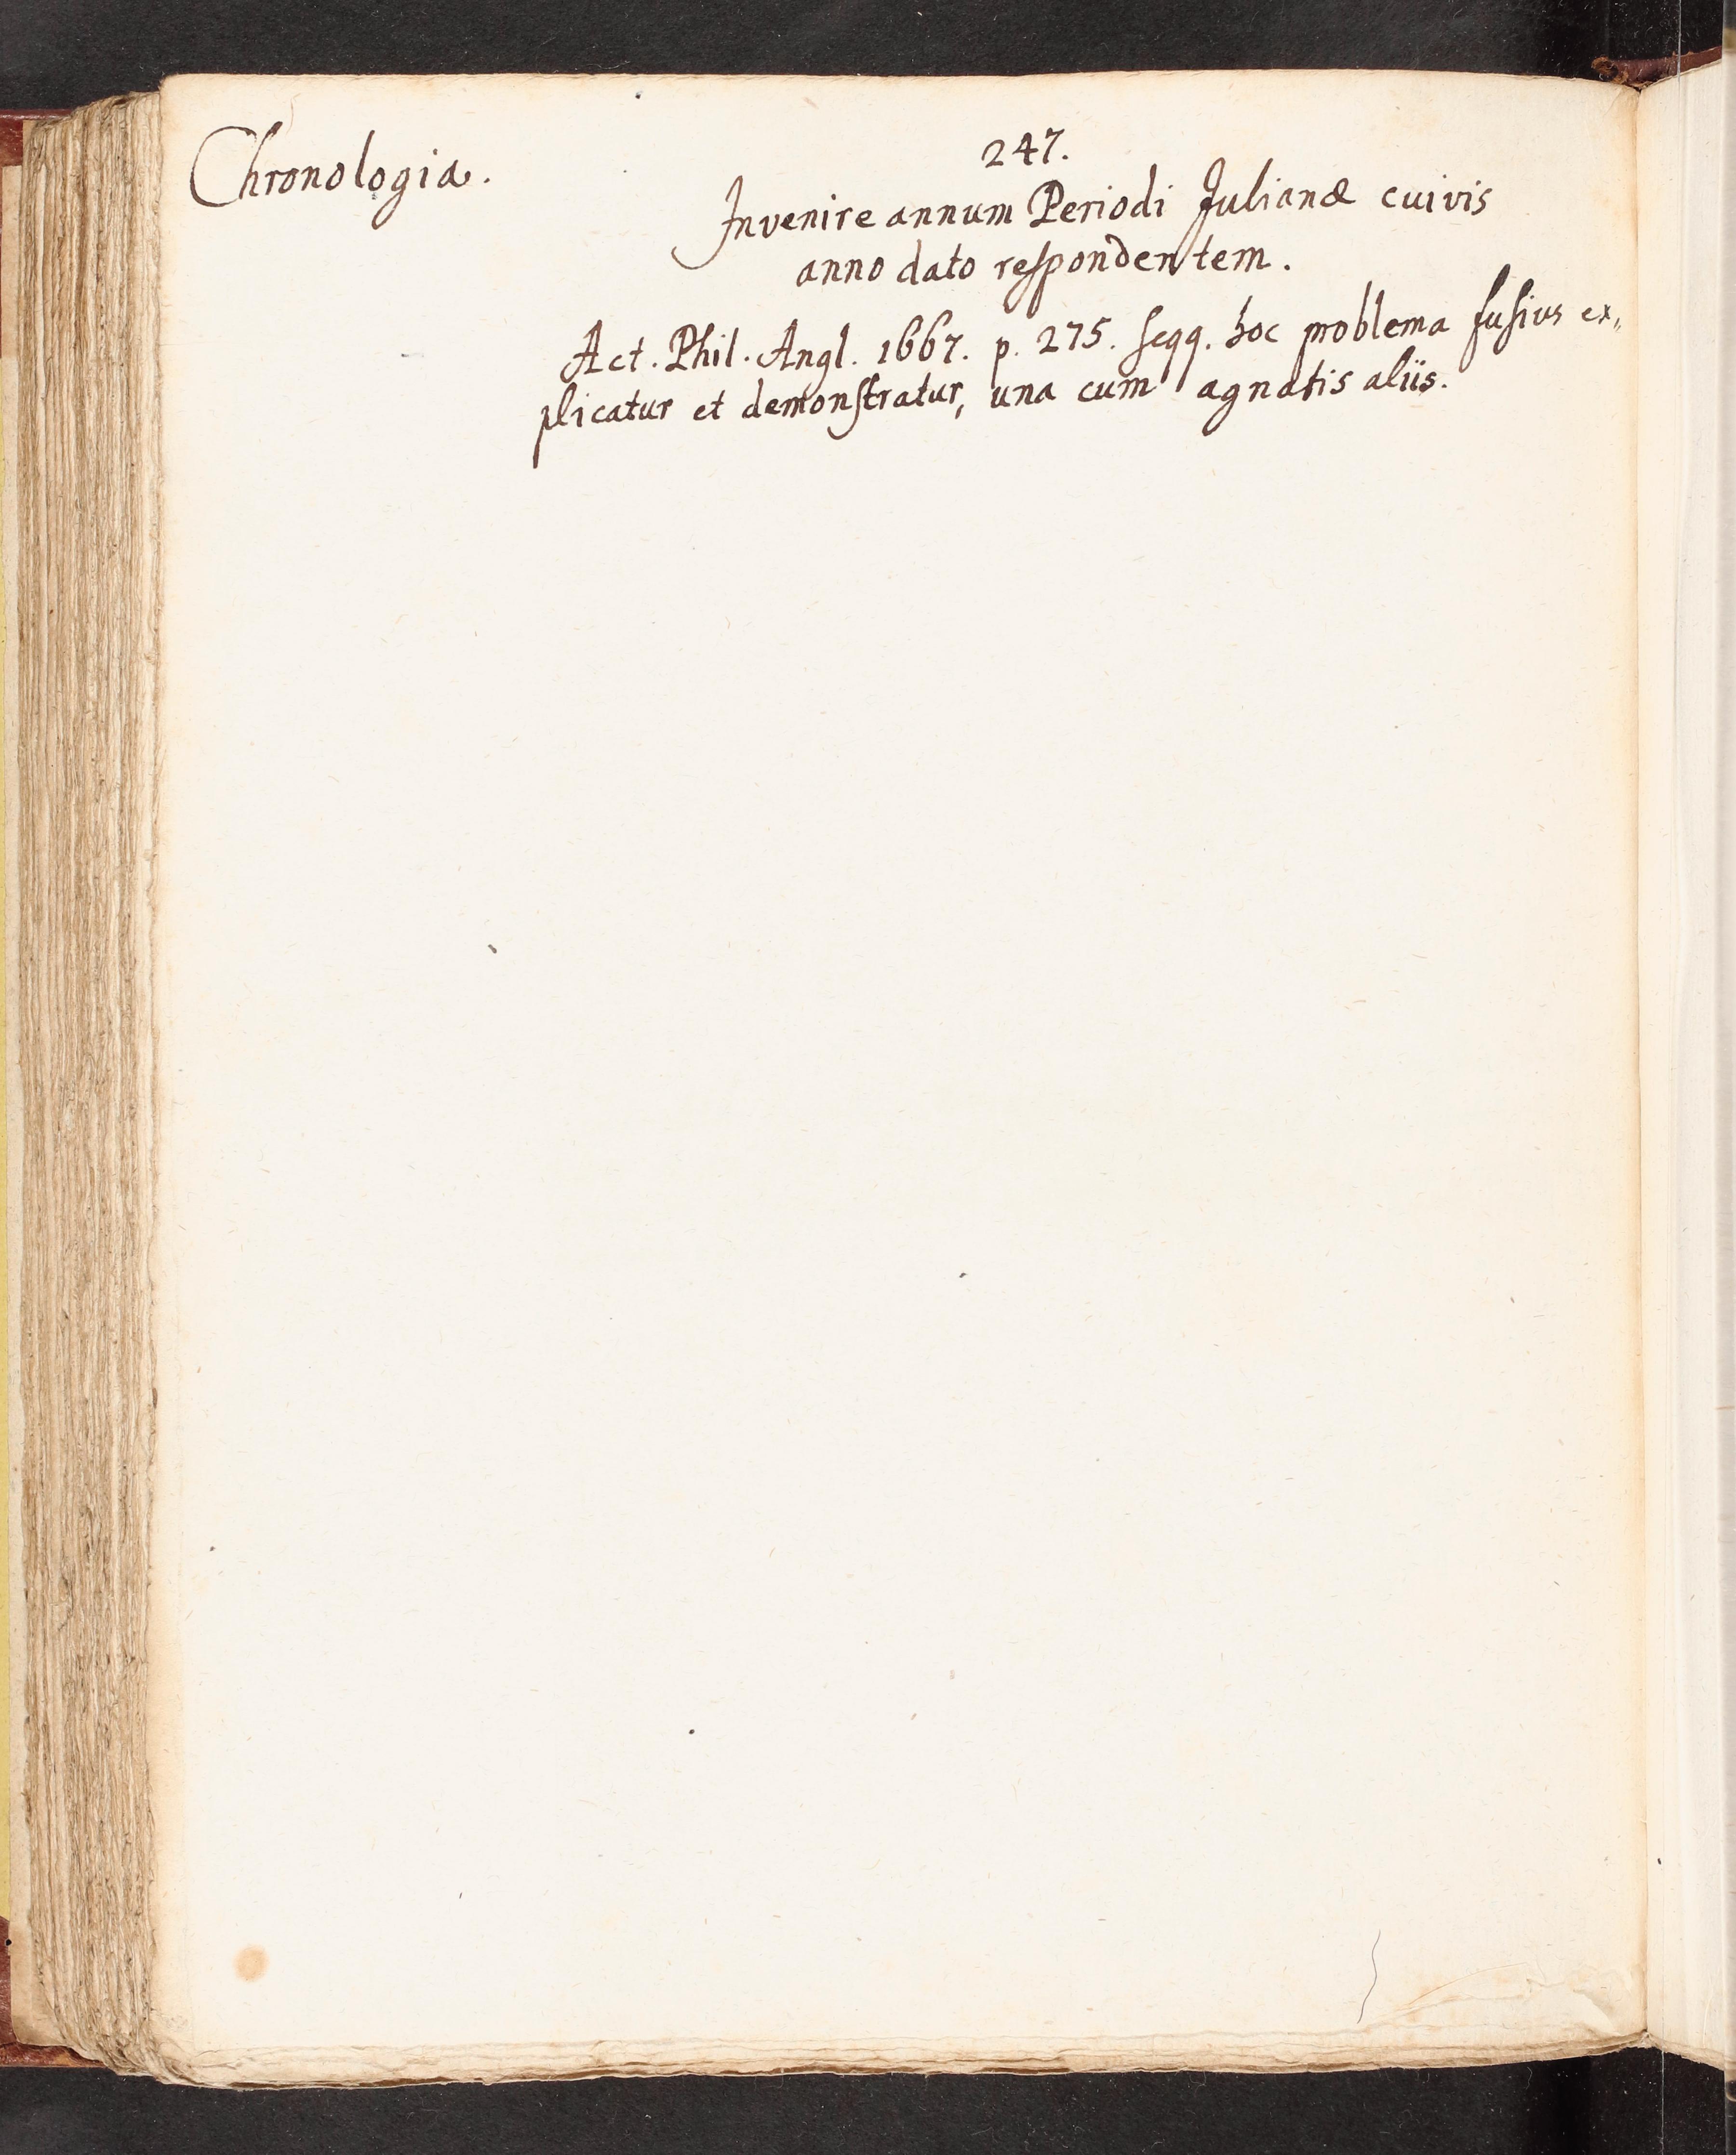 Chronologia.
247.
Invenire annum Periodi Julianæ cuivis
anno dato reſpondentem.
Act. Phil. Angl. 1667. p. 275. ſeqq. hoc problema fuſius ex„
plicatur et demonſtratur, una cum agnatis aliis.